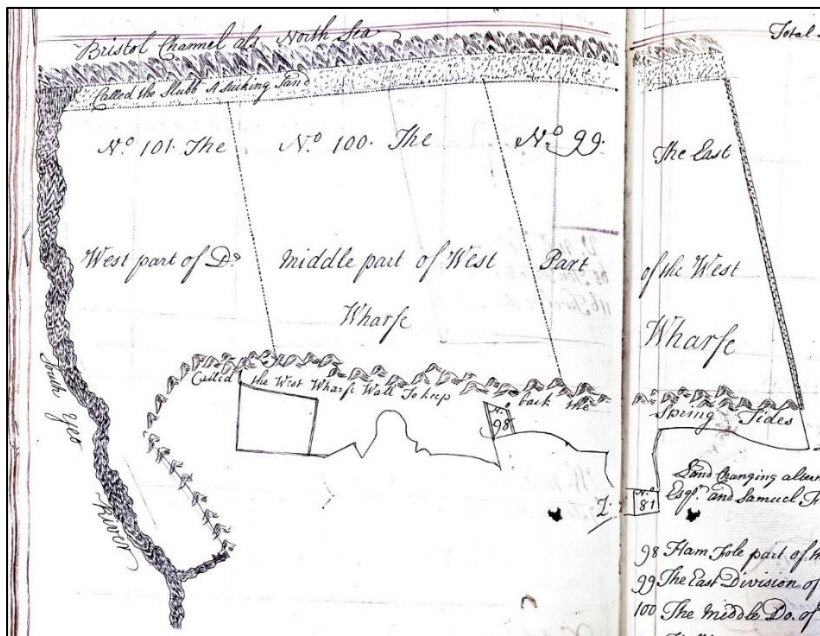 Bristol Channel als. North Sea
Total
Called the Slubb A Sinking Sand
No. 101. The
No. 100. The
No. 99.
The East
West part of Do.
Middle part of West
Part
of the West
Wharfe
Wharfe
Called the West Wharfe Wall To keep back the Spring Tides
No. 98
Yeo
River
No. 81
Land Changing
Esqr. and Samuel
98 Ham Hole part of
99 The East Division of
100 The Middle Do. of